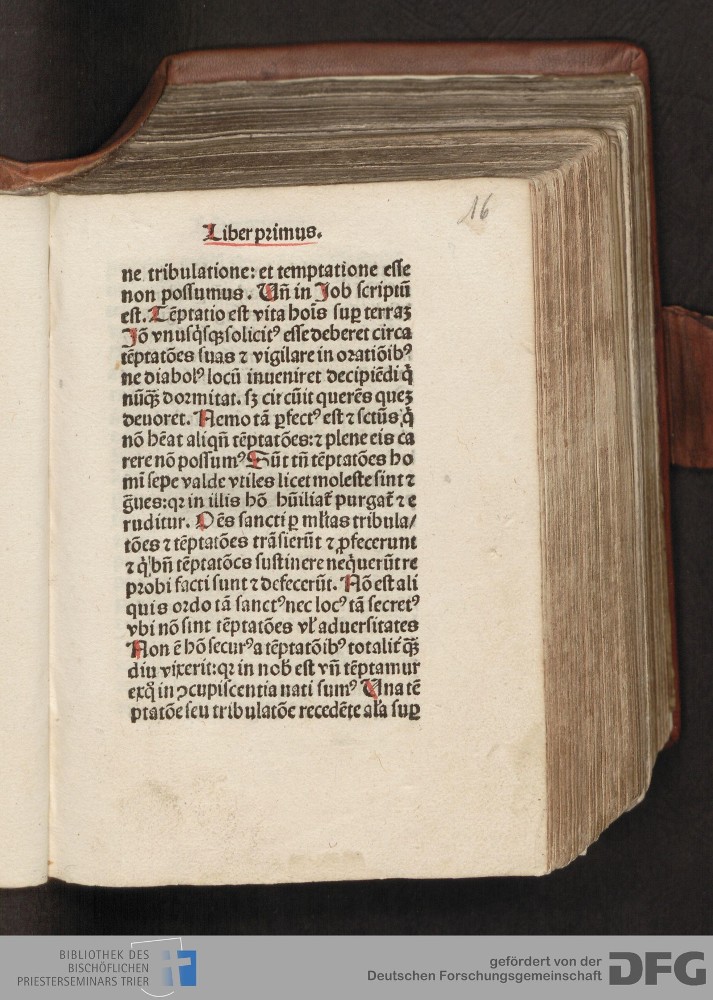 16
Liber primus.
ne tribulatione: et temptatione esse
non possumus. Vñ in Job scriptū
est. Tēptatio est vita hoīs suꝑ terraꝫ
Jō vnusq̇sqꝫ solicitꝰ esse deberet circa
tēptatōes suas ⁊ vigilare in oratiōibꝰ
ne diabolꝰ locū inueniret decipiēdi q̇
nūq̄ꝫ dormitat. sꝫ circūit querēs queꝫ
deuoret. Nemo tā ꝑfectꝰ est ⁊ sctūs q̇
nō hēat aliqñ tēptatōes: ⁊ plene eis ca
rere nō possumꝰ Sūt tñ tēptatōes ho
mī sepe valde vtiles licet moleste sint ⁊
g̃ues: qꝛ in illis hō hūiliat᷑ purgat᷑ ⁊ e
ruditur. Oēs sancti ꝑ mlt̃as tribula/
tōes ⁊ tēptatōes trāsierūt ⁊ ꝓfecerunt
⁊ q̇ bñ tēptatōes sustinere neq̇uerūt re
probi facti sunt ⁊ defecerūt. Nō est ali
quis ordo tā sanctꝰ nec locꝰ tā secretꝰ
vbi nō sint tēptatōes vl̓ aduersitates
Non ē hō securꝰ a tēptatōibꝰ totalit᷑ q̄ꝫ
diu vixerit: qꝛ in nob̓ est vñ tēptamur
ex quo in ꝯcupiscentia nati sumꝰ Una tē
ptatōe seu tribulatōe recedēte al̓a suꝑ
BIBLIOTHEK DES
BISCHÖFLICHEN
PRIESTERSEMINARS TRIER
gefördert von der
Deutschen Forschungsgemeinschaft
DFG